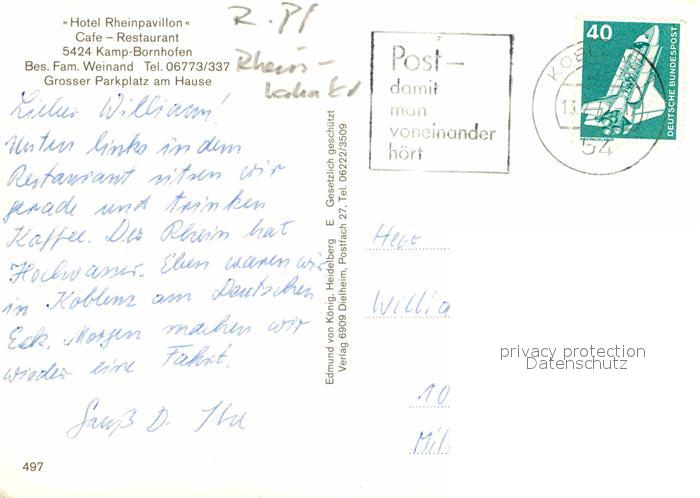 »Hotel Rheinpavillon«
Cafe – Restaurant
5424 Kamp-Bornhofen
Bes. Fam. Weinand Tel. 06773/337
Grosser Parkplatz am Hause
R. Pf
Rhein-
Lieber William!
Unten links in dem
Restaurant sitzen wir
gerade und trinken
Kaffee. Der Rhein hat
Hochwasser. Eben waren wir
in Koblenz am Deutschen
Eck. Morgen machen wir
wieder eine Fahrt.
Gruß D.
497
Edmund von König, Heidelberg E Gesetzlich geschützt
Verlag 6909 Dielheim, Postfach 27, Tel. 06222/3509
Post –
damit
man
voneinander
hört
KOB
13.2
54
40
DEUTSCHE BUNDESPOST
Herr
Willia
10
Mil
privacy protection
Datenschutz